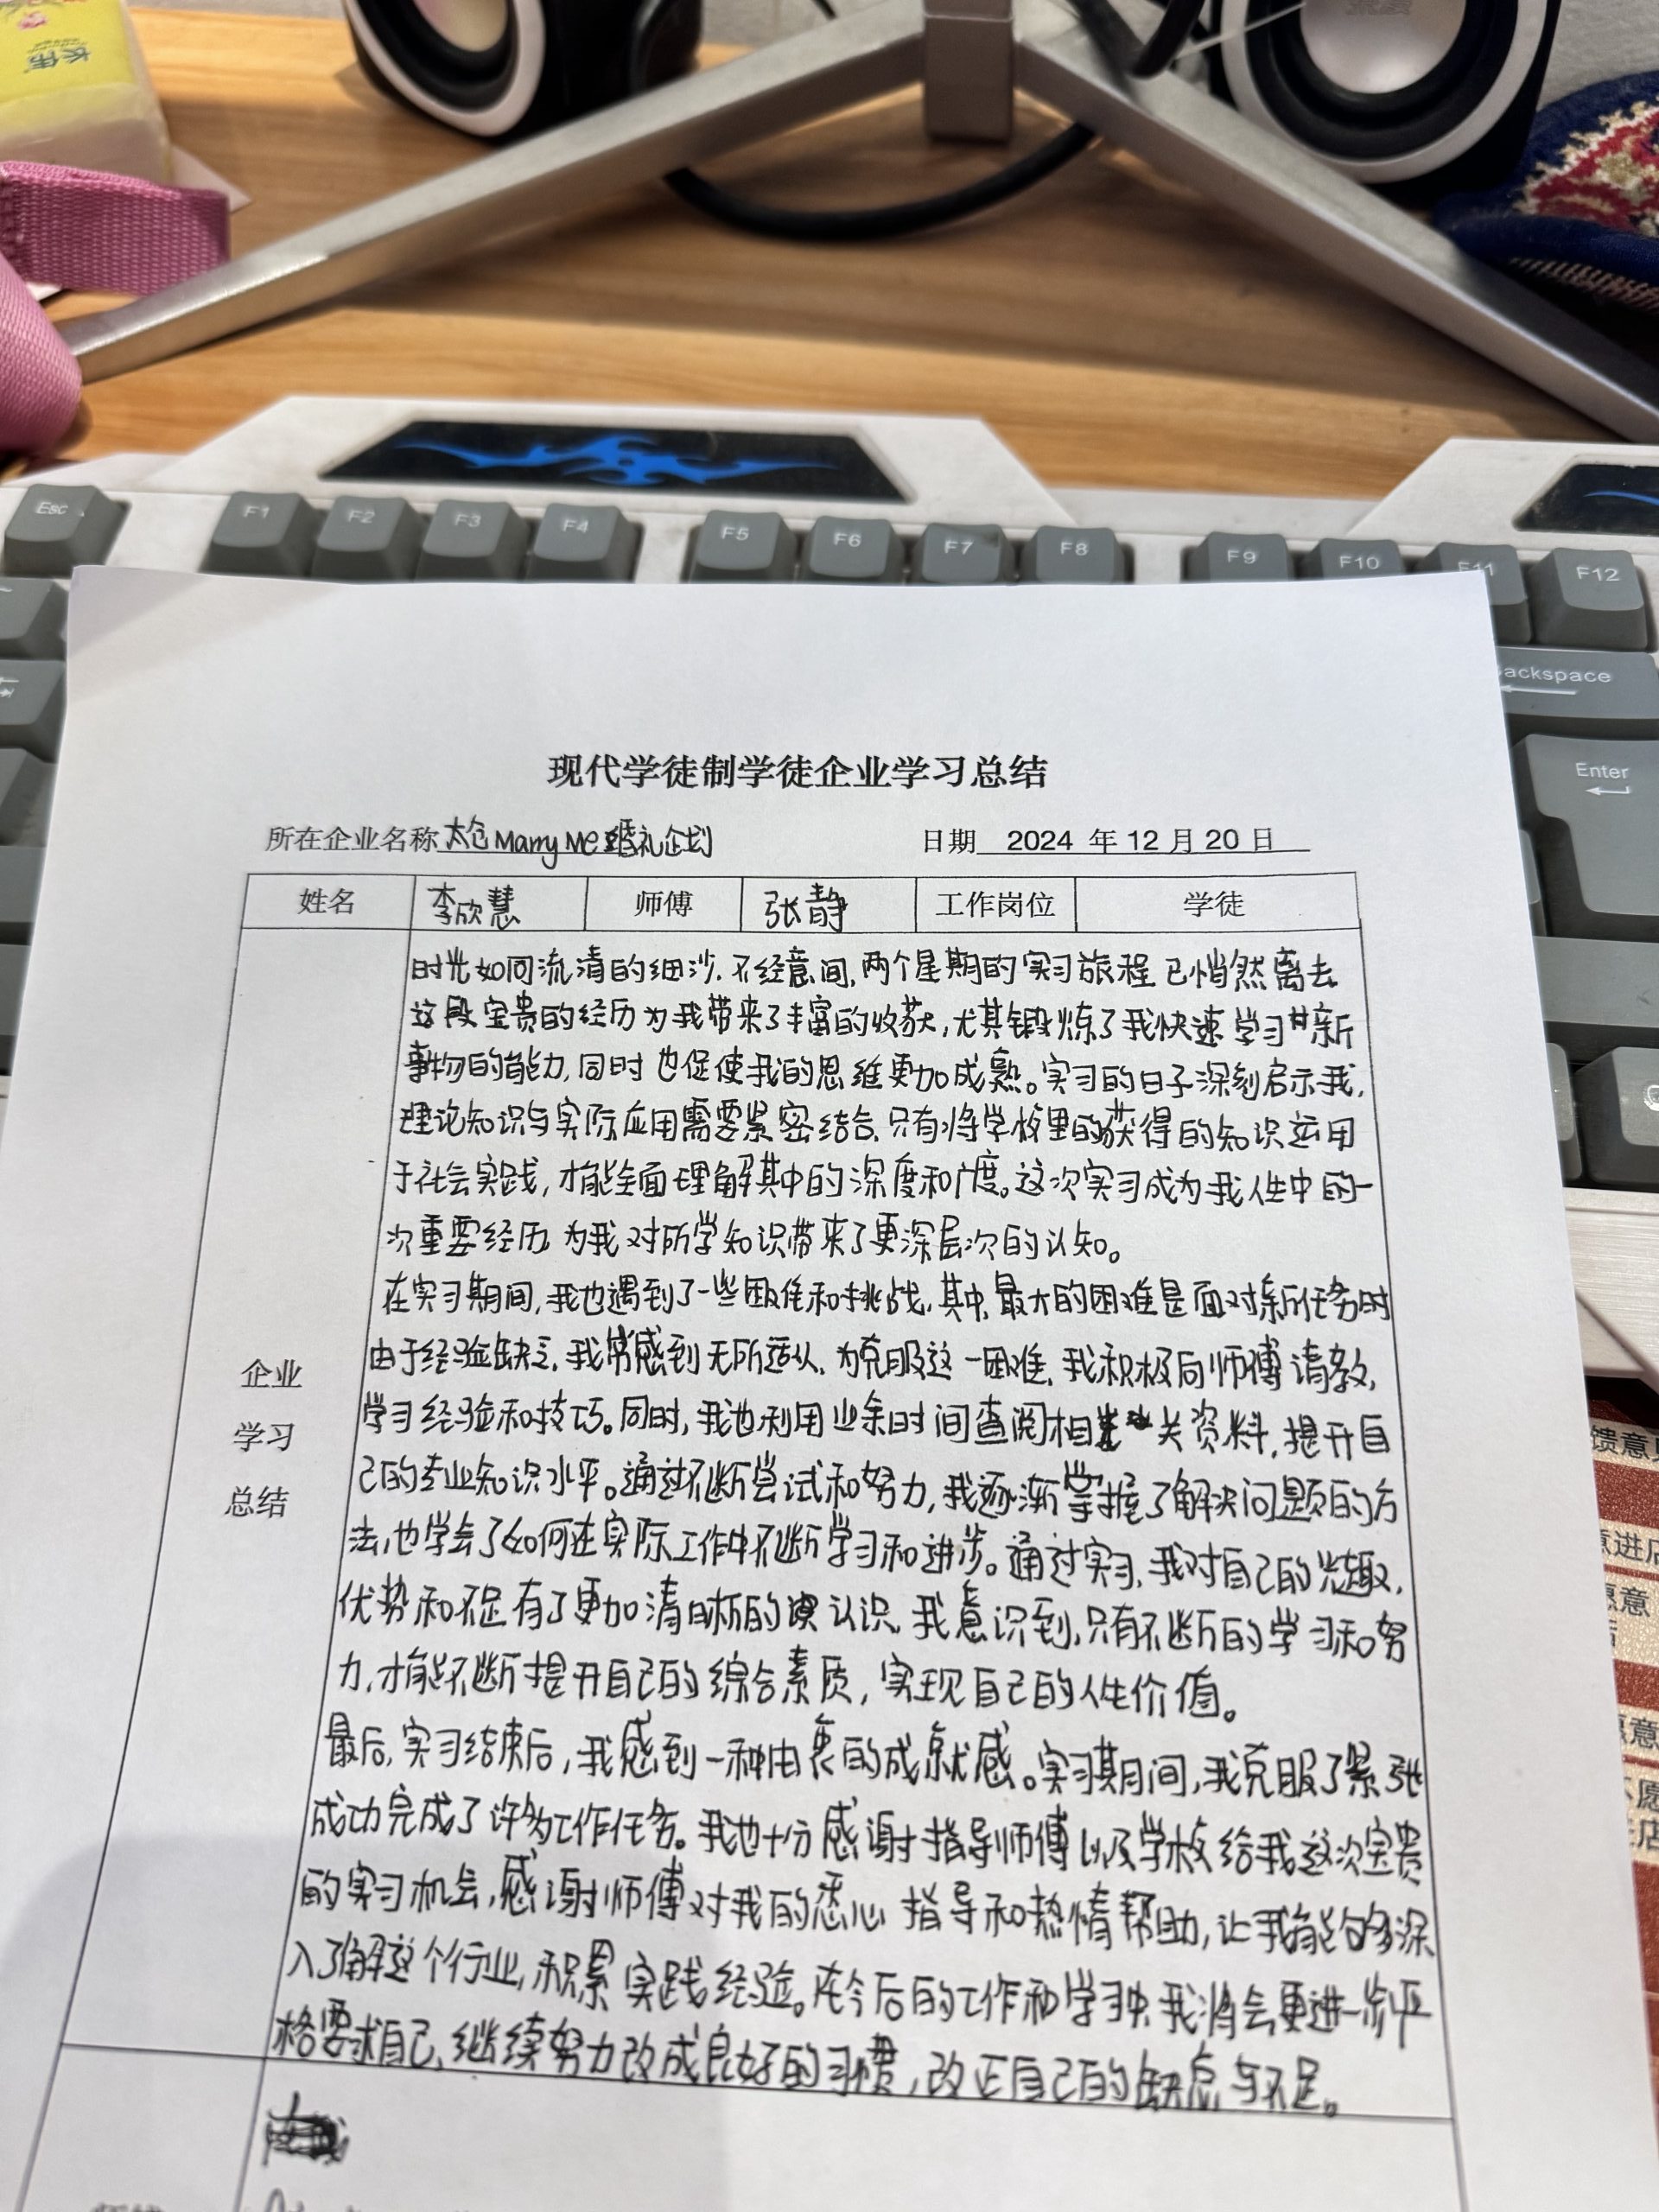 Esc
F1
F2
F3
F4
F5
F6
F7
F8
F9
F10
F11
F12
ackspace
Enter
现代学徒制学徒企业学习总结
所在企业名称 太仓Marry Me婚礼企划 日期 2024 年 12 月 20 日
姓名 李欣慧 师傅 张静 工作岗位 学徒
时光如同流淌的细沙,不经意间,两个星期的实习旅程已悄然离去
这段宝贵的经历为我带来了丰富的收获,尤其锻炼了我快速学习新
事物的能力,同时也促使我的思维更加成熟。实习的日子深刻启示我,
理论知识与实际应用需要紧密结合,只有将学校里的获得的知识运用
于社会实践,才能全面理解其中的深度和广度。这次实习成为我人生中的一
次重要经历,为我对所学知识带来了更深层次的认知。
在实习期间,我也遇到了一些困难和挑战,其中,最大的困难是面对新任务时
由于经验缺乏,我常感到无所适从,为克服这一困难,我积极向师傅请教,
学习经验和技巧。同时,我也利用业余时间查阅相关资料,提升自
己的专业知识水平。通过不断尝试和努力,我逐渐掌握了解决问题的方
法,也学会了如何在实际工作中不断学习和进步。通过实习,我对自己的兴趣,
优势和不足有了更加清晰的认识,我意识到,只有不断的学习和努
力,才能不断提升自己的综合素质,实现自己的人生价值。
最后,实习结束后,我感到一种由衷的成就感。实习期间,我克服了紧张
成功完成了许多工作任务。我也十分感谢指导师傅以及学校给我这次宝贵
的实习机会,感谢师傅对我的悉心指导和热情帮助,让我能够深
入了解这个行业,积累实践经验。在今后的工作和学习中,我将会更进一步严
格要求自己,继续努力改成良好的习惯,改正自己的缺点与不足。
企业
学习
总结
馈意见
意进店
愿意